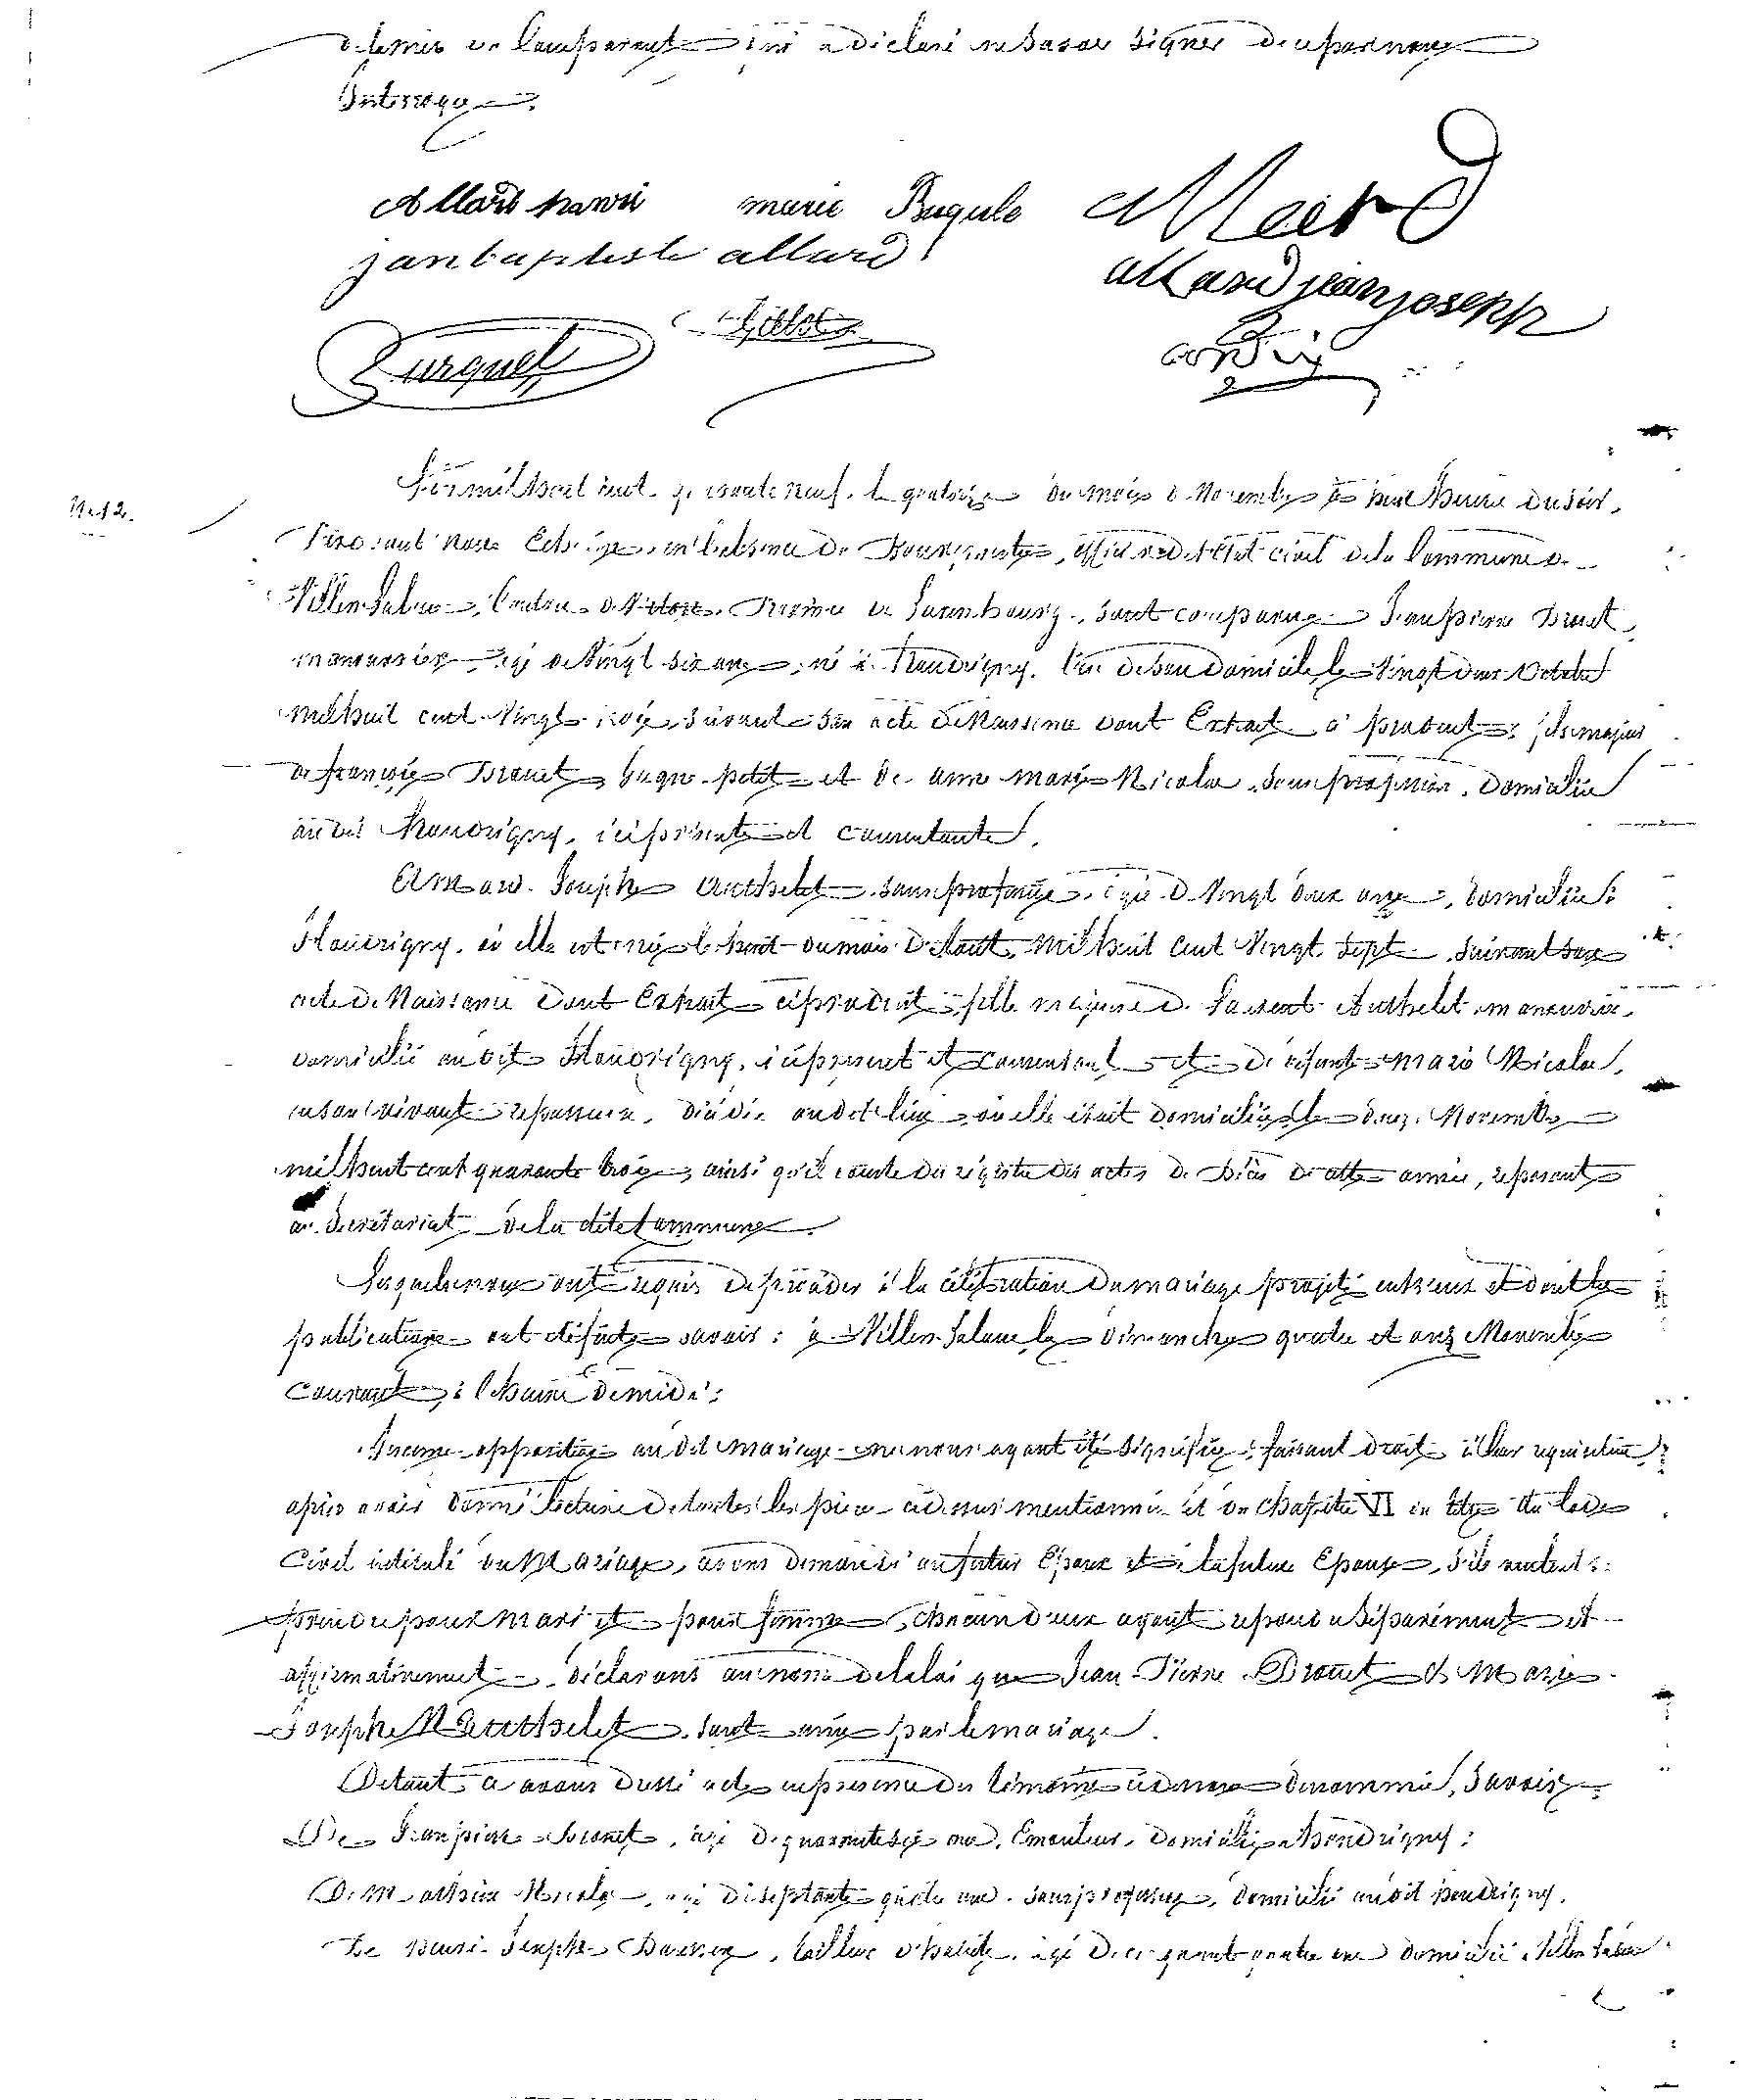 de la mère de l'comparante qui a déclaré ne savoir signer de ce par nous
Interrogé.
Allard marie marie Buqule Maird
jan baptiste allard allard jean joseph
Burquel Gillet
N° 12.
L'an mil huit cent quarante neuf, le quatorze du mois de Novembre à heure du soir,
Pardevant Nous Echevin, en l'absence du Bourgmestre, officier de l'Etat civil de la Commune de
Villers-la-Loue, Canton de Virton, Province de Luxembourg, sont comparus Jean pierre Drouet
manouvrier, âgé de Vingt six ans, né à Houdrigny, lieu de son Domicile, le Vingt deux Octobre
mil huit cent Vingt trois, suivant son acte de Naissance dont Extrait a produit; fils majeur
de françois Drouet, et de anne marie Nicolas, sans profession, Domiciliés
au dit Houdrigny, ici présents et consentants.
Et Marie Joseph Authelet, sans profession, âgée de Vingt deux ans, domiciliée à
Houdrigny, où elle est née le huit du mois d'Août mil huit cent Vingt sept, suivant son
acte de Naissance dont Extrait a produit, fille majeure de Laurent Authelet, manouvrier,
domicilié au dit Houdrigny, ici présent et consentant et de défunte marie Nicolas,
en son vivant repasseuse, décédée au dit lieu, où elle était domiciliée, le douze Novembre
mil huit cent quarante trois, ainsi qu'il conste du régistre des actes de Décès de cette année, reposant
au Secrétariat de la dite Commune.
Lesquels nous ont requis de procéder à la célébration du mariage projeté entr'eux et dont les
publications ont été faites savoir: à Villers-la-Loue les dimanches quatre et onze Novembre
courant, à l'heure de midi;
Aucune opposition au dit mariage ne nous ayant été signifiée; faisant droit à leur requisition,
après avoir donné lecture de toutes les pièces ci-dessus mentionnées et du chapitre VI du titre du Code
Civil intitulé du Mariage, avons demandé au futur Epoux et à la future Epouse, s'ils veulent se
prendre pour mari et pour femme, chacun d'eux ayant répondu séparément et
affirmativement, déclarons au nom de la loi que Jean-Pierre Drouet et Marie
Joseph Authelet sont unis par le mariage.
De tout ce avons dressé acte en présence des témoins ci-dessous dénommés, Savoir:
De Jean pierre Drouet, âgé de quarante six ans, Emouleur, domicilié à Houdrigny;
De Mathieu Nicolas, âgé de septante quatre ans, sans profession, domicilié au dit houdrigny,
De henri Joseph, tailleur d'habits, âgé de cinquante quatre ans domicilié à Villers-la-Loue